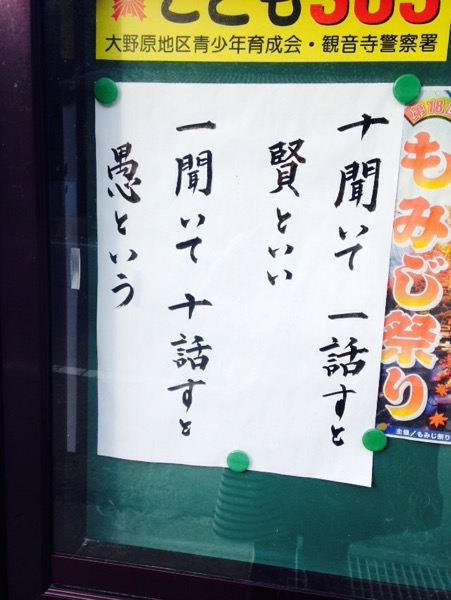 こども365
大野原地区青少年育成会・観音寺警察署
十聞いて 一話すと
賢といい
一聞いて 十話すと
愚という
もみじ祭り
主催/もみじ祭り